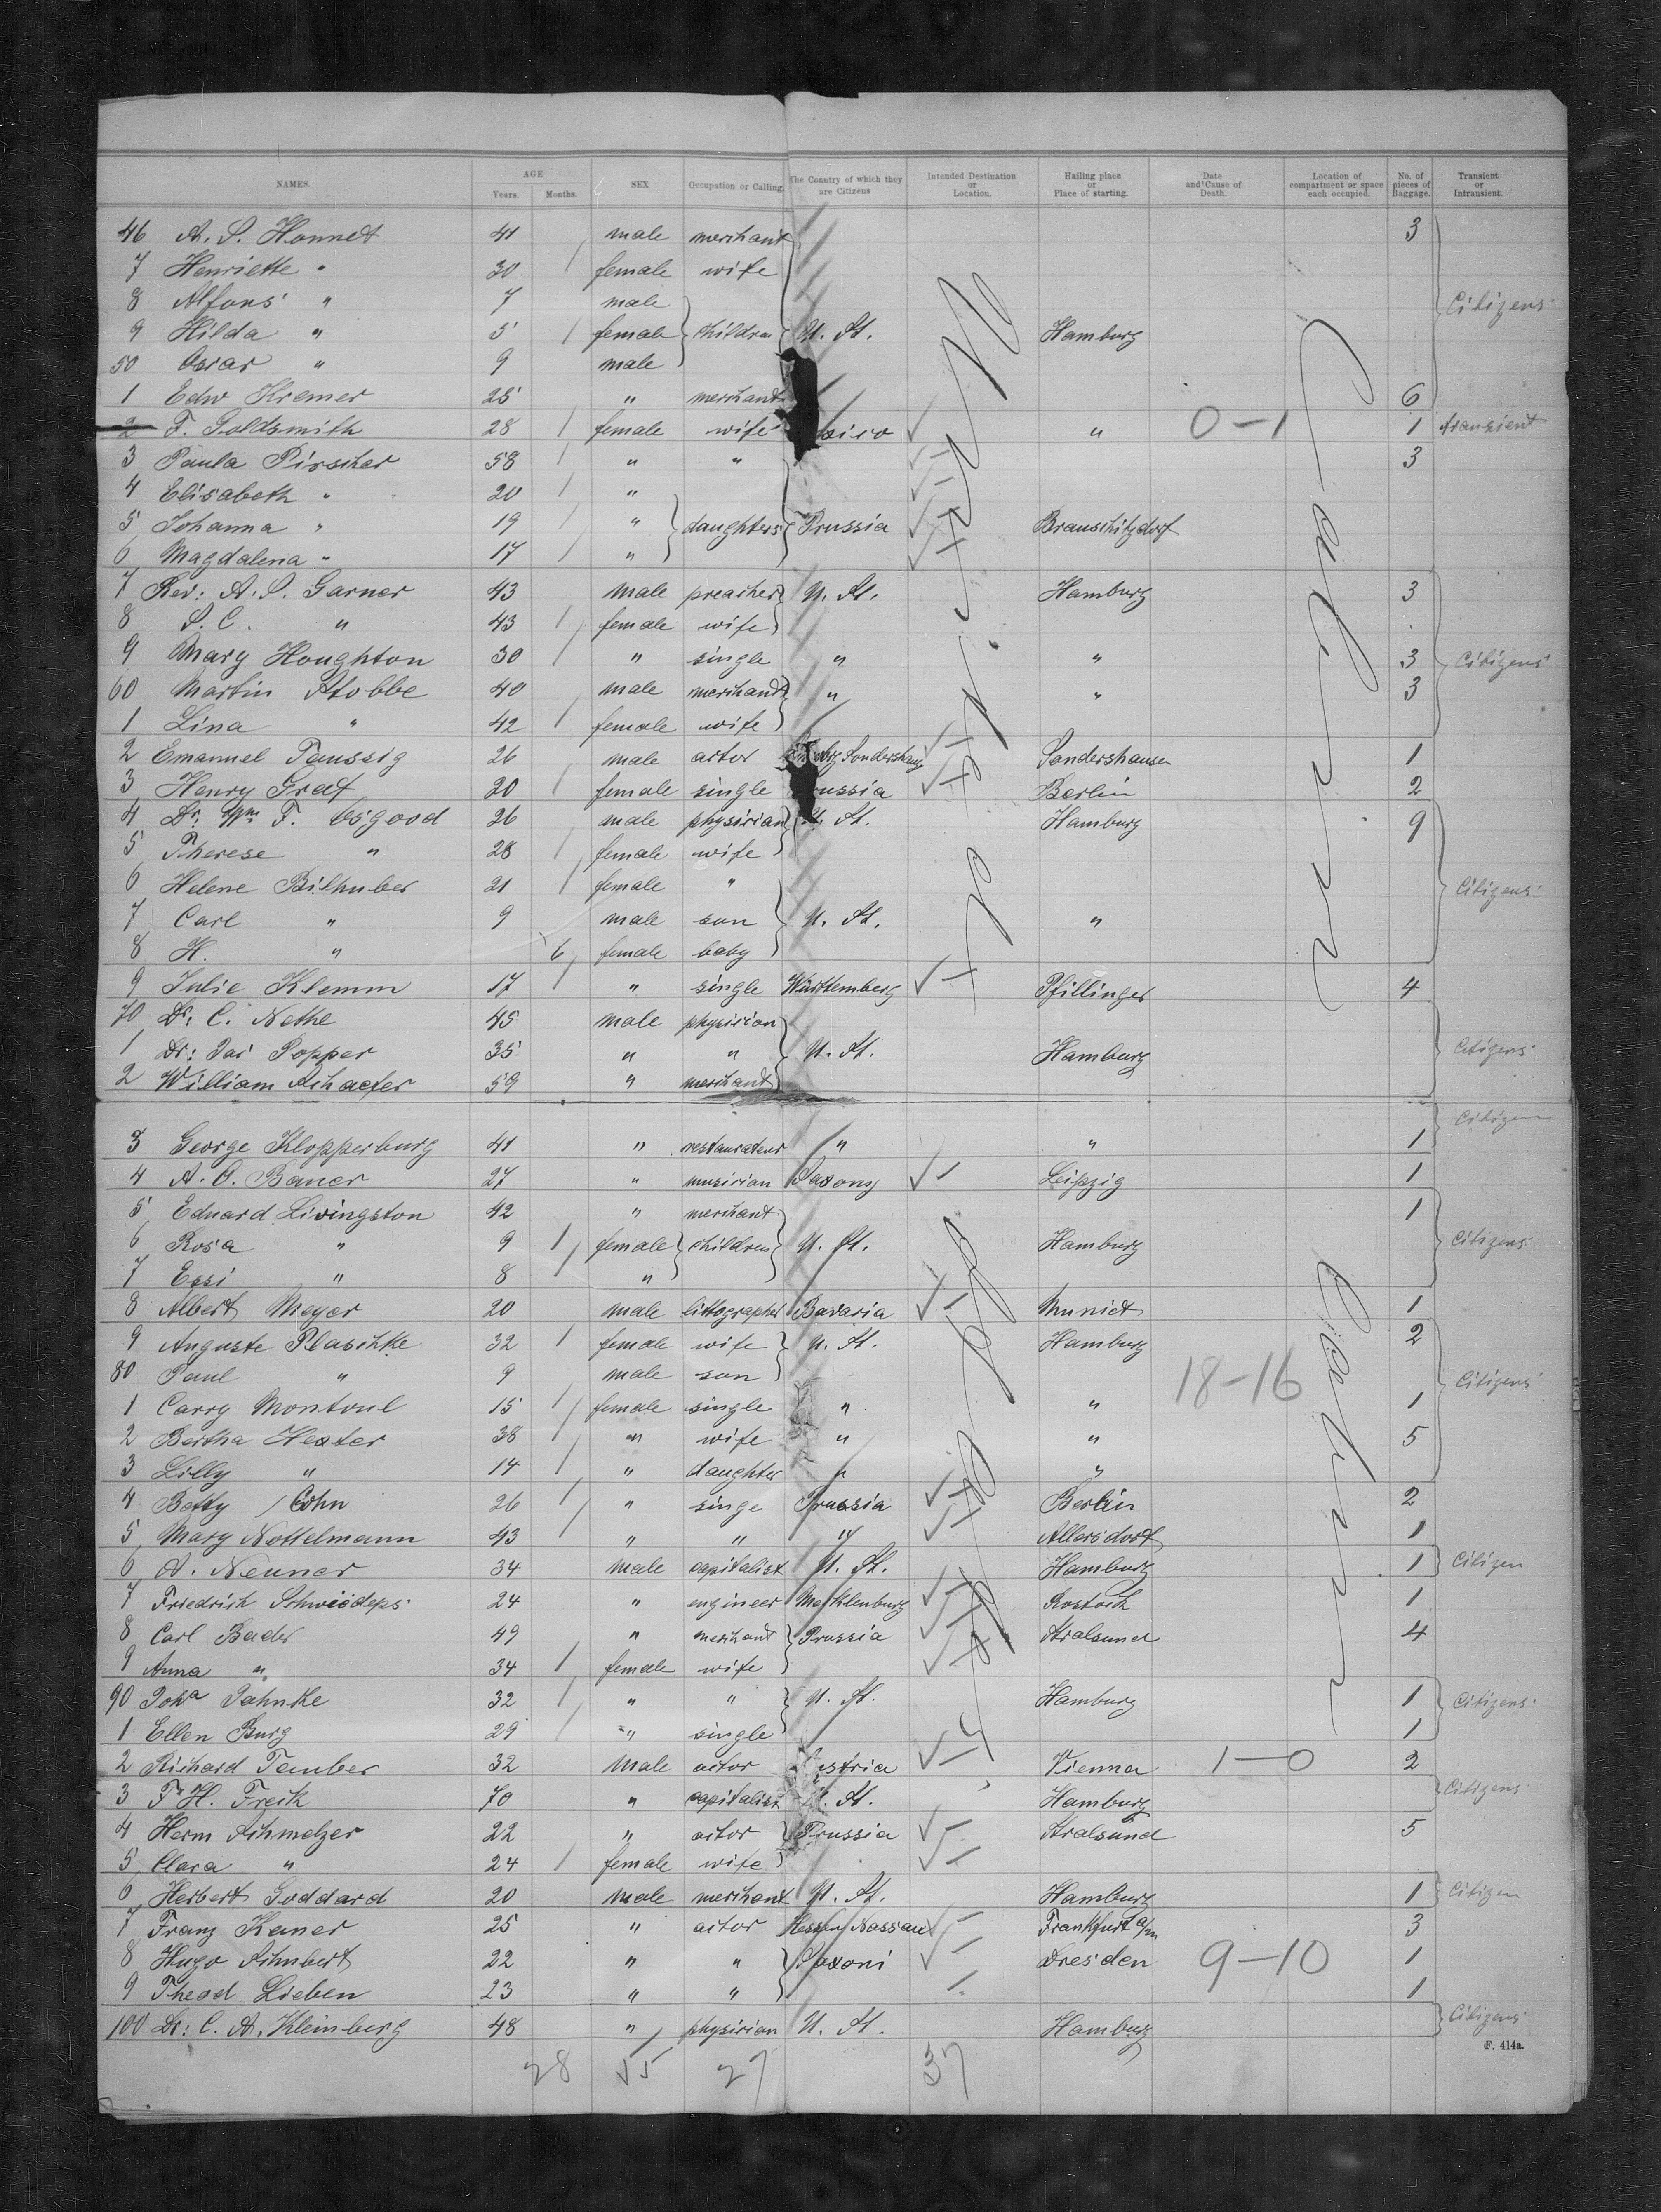 NAMES. AGE Years. Months. SEX Occupation or Calling. The Country of which they are Citizens Intended Destination or Location. Hailing place or Place of starting. Date and Cause of Death. Location of compartment or space each occupied. No. of pieces of Baggage. Transient or Intransient.
46 A. S. Honnet 41 male merchant 3
7 Henriette " 30 / female wife
8 Alfons " 7 male Citizens
9 Hilda " 5 / female children U. St. Hamburg
50 Oscar " 9 male
1 Edw Kremer 25 " merchant 6
2 F. Goldsmith 28 / female wife " 0-1 1 transient
3 Paula Pirscher 58 / " " 3
4 Elisabeth " 20 / "
5 Johanna " 19 / " daughters Prussia Brauschitzdorf
6 Magdalena " 17 / "
7 Rev: A. S. Garner 43 male preacher U. St. Hamburg 3
8 S. C. " 43 / female wife
9 Mary Houghton 30 / " single " " 3 Citizens
60 Martin Stobbe 40 male merchant " " 3
1 Lina " 42 / female wife
2 Emanuel Taussig 26 male actor Sondershaus Sondershausen 1
3 Henry Graf 20 / female single Prussia Berlin 2
4 Dr: Wm F. Osgood 26 male physician U. St. Hamburg 9
5 Therese " 28 / female wife
6 Helene Bilhuber 21 / female " Citizens
7 Carl " 9 male son U. St. "
8 H. " 6 female baby
9 Julie Klemm 17 / " single Württemberg Pfillinger 4
70 Dr: C. Nethe 45 male physician
1 Dr: Jas Popper 35 " " U. St. Hamburg Citizens
2 William Schaefer 59 " merchant
3 George Klopperburg 41 " restaurateur " " 1 Citizen
4 A. O. Bauer 27 " musician Saxony Leipzig 1
5 Eduard Livingston 42 " merchant 1
6 Rosa " 9 / female children U. St. Hamburg Citizens
7 Essi " 8 / "
8 Albert Meyer 20 male littographer Bavaria Munich 1
9 Auguste Plaschke 32 / female wife U. St. Hamburg 2
80 Paul " 9 male son 18-16 Citizens
1 Carry Montoul 15 / female single " " 1
2 Bertha Hexter 38 / " wife " " 5
3 Lilly " 14 / " daughter " "
4 Betty Cohn 26 / " singe Prussia Berlin 2
5 Mary Nottelmann 43 / " " " Allersdorf 1
6 A. Neuner 34 male capitalist U. St. Hamburg 1 Citizen
7 Friedrich 24 " engineer Mecklenburg Rostock 1
8 Carl Bader 49 " merchant Prussia Stralsund 4
9 Anna " 34 / female wife
90 Joha Jahnke 32 / " " U. St. Hamburg 1 Citizens
1 Ellen Burg 29 / " single 1
2 Richard Tauber 32 male actor Austria Vienna 1-0 2
3 F. H. Freik 70 " capitalist U. St. Hamburg Citizens
4 Herm Schmelzer 22 " actor Prussia Stralsund 5
5 Clara " 24 / female wife
6 Herbert Goddard 20 male merchant U. St. Hamburg 1 Citizen
7 Franz Kauer 25 " actor Hessen Nassau Frankfurt a/m 3
8 Hugo Schubert 22 " " Saxoni Dresden 9-10 1
9 Theod Lieben 23 " " 1
100 Dr: C. A. Kleinburg 48 " physician U. St. Hamburg Citizens
28 55 27 37
F. 414a.